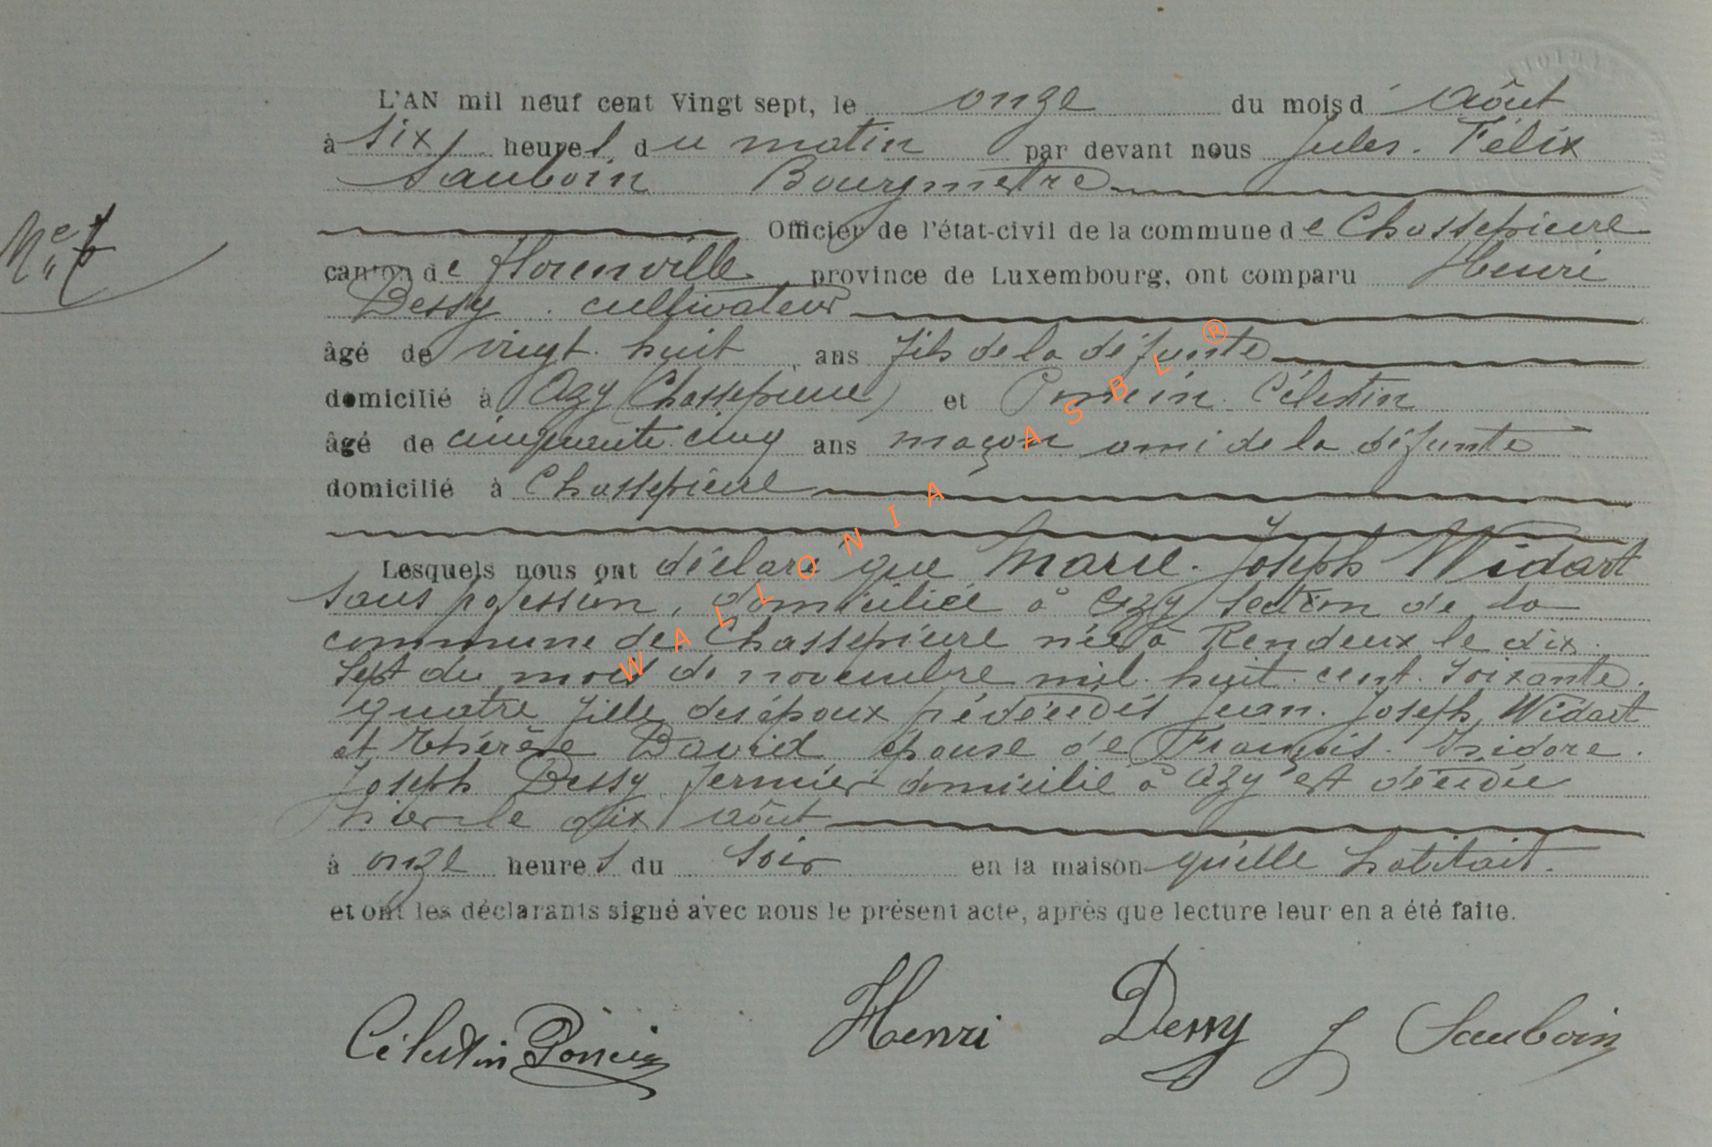 L'AN mil neuf cent Vingt sept, le onze du mois d'Août
à six heures du matin par devant nous Jules. Félix
Sauboin Bourgmestre
Officier de l'état-civil de la commune de Chassepierre
canton de florenville province de Luxembourg, ont comparu Henri
Dessy. cultivateur
âgé de vingt. huit ans fils de la défunte
domicilié à Azy (Chassepierre) et Poncin Célestin
âgé de cinquante. cinq ans maçon ami de la défunte
domicilié à Chassepierre
Lesquels nous ont déclaré que Marie. Joseph Widart
sans profession, domiciliée à Azy section de la
commune de Chassepierre née à Rendeux le dix.
sept du mois de novembre mil. huit. cent. soixante.
quatre fille des époux prédécédés Jean. Joseph Widart
et Thérèse David épouse de François. Isidore.
Joseph Dessy fermier domicilié à Azy est décédée
hier le dix août
à onze heures du soir en la maison qu'elle habitait.
et ont les déclarants signé avec nous le présent acte, après que lecture leur en a été faite.
Célestin Poncin Henri Dessy J Sauboin
WALLONIA ASBL ®